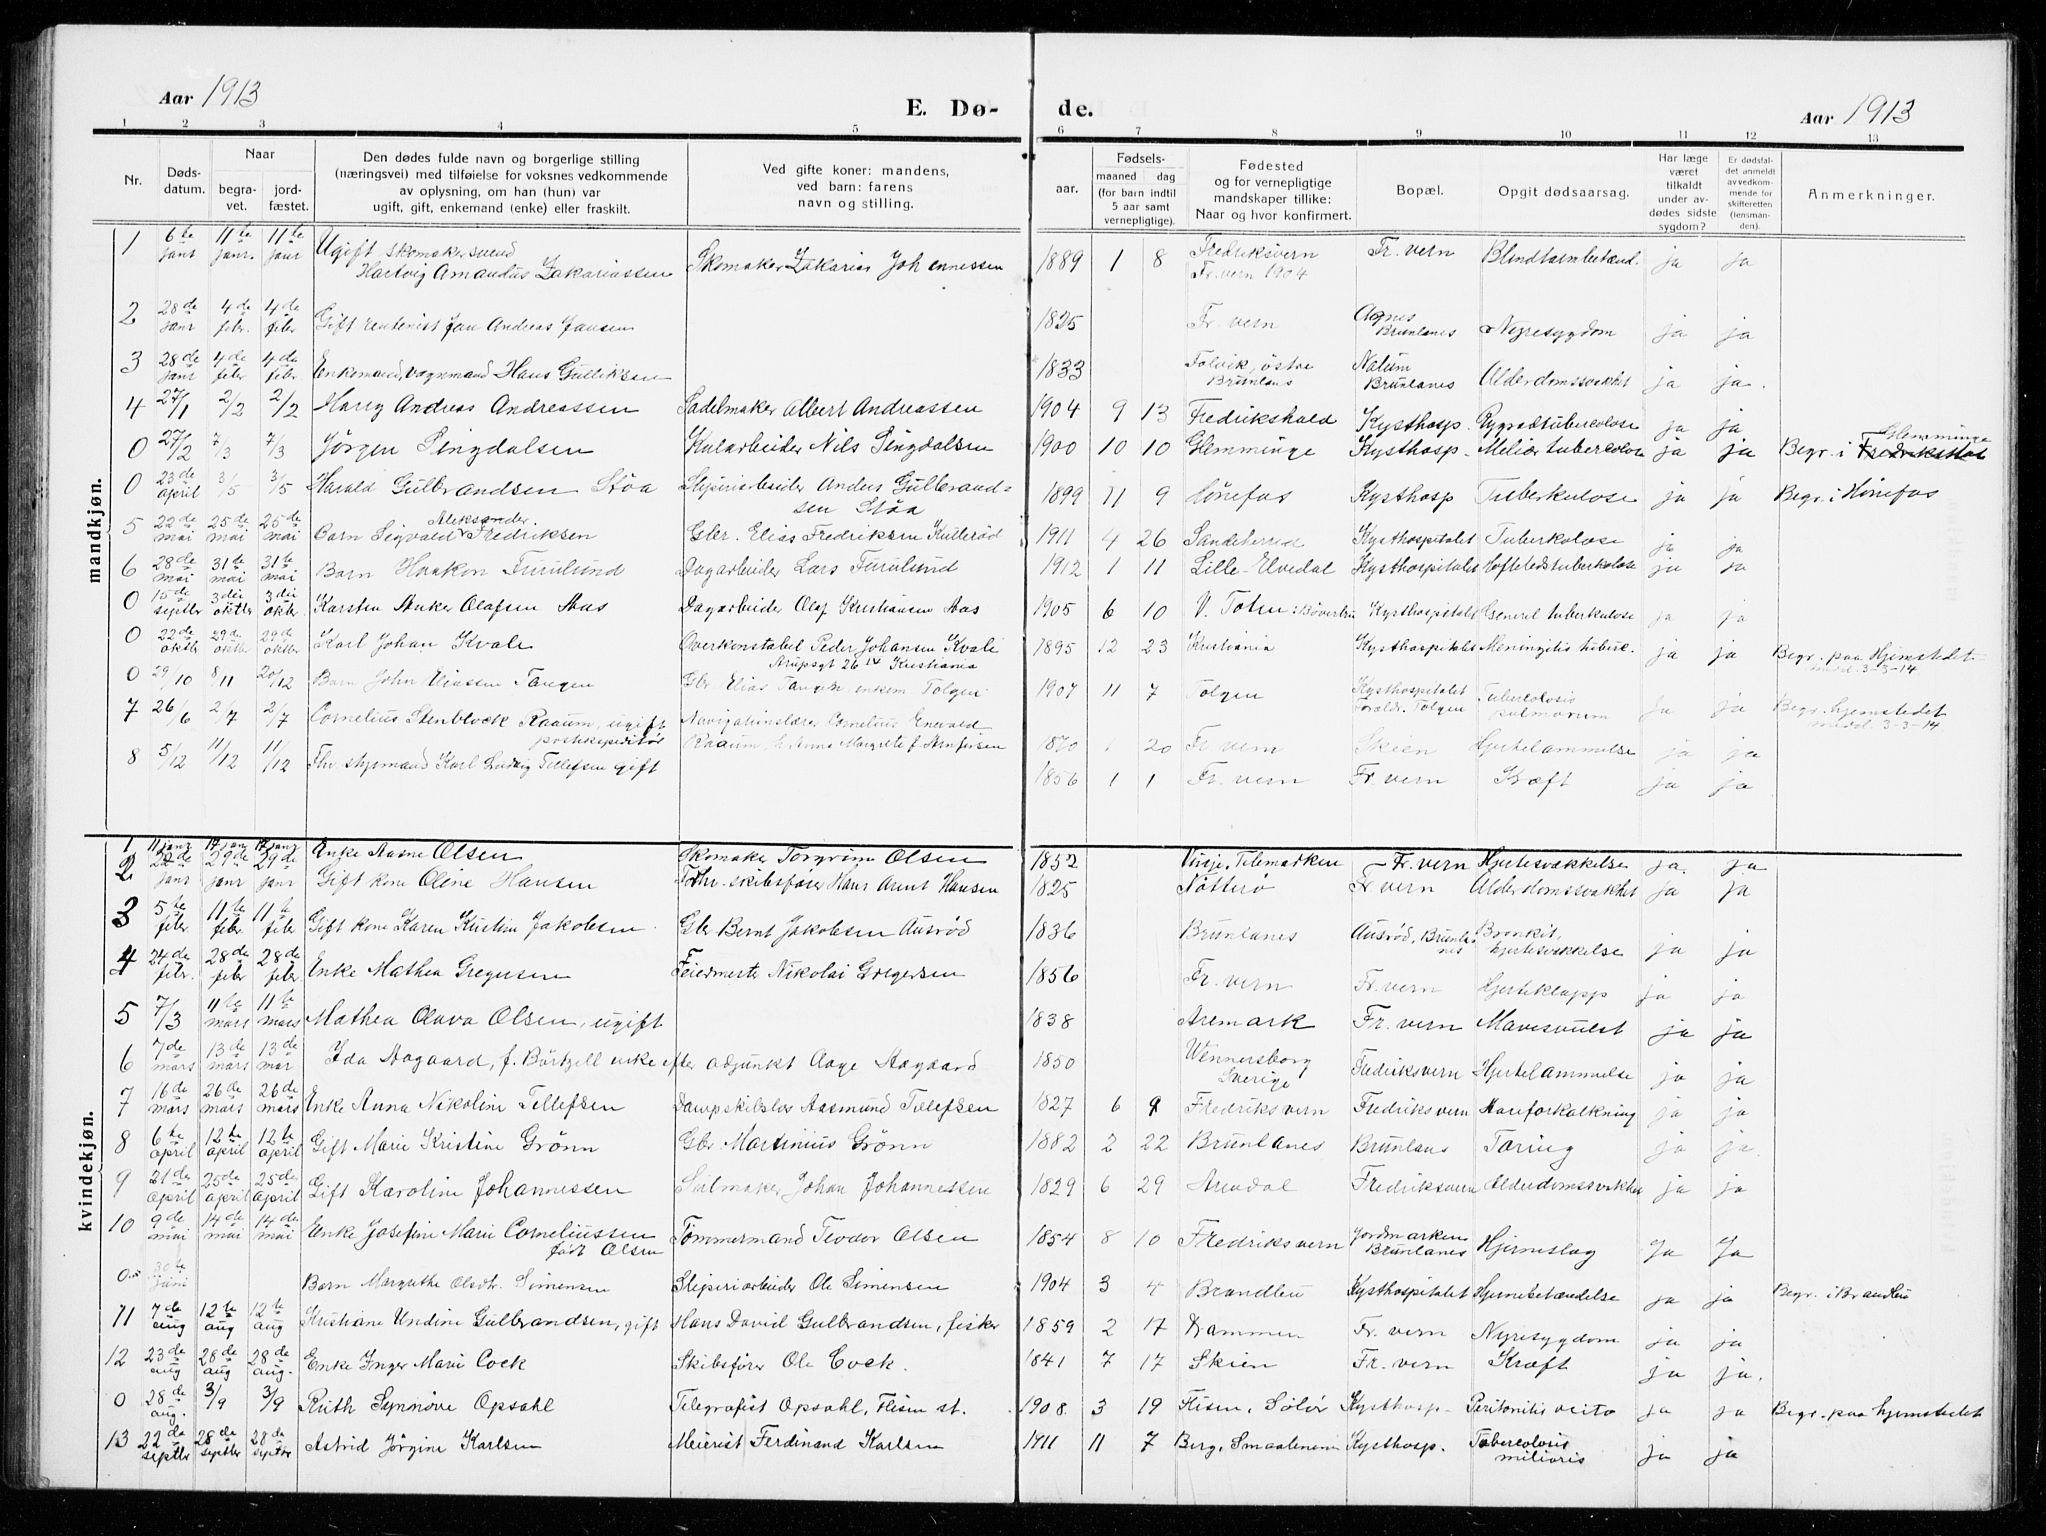 Aar 1913
E. Dø-
de.
Aar 1913
1 2 3 4 5 6 7 8 9 10 11 12 13
Nr.
Døds-
datum.
Naar
begra-
vet.
jord-
fæstet.
Den dødes fulde navn og borgerlige stilling
(næringsvei) med tilføielse for voksnes vedkommende
av oplysning, om han (hun) var
ugift, gift, enkemand (enke) eller fraskilt.
Ved gifte koner: mandens,
ved barn: farens
navn og stilling.
aar.
Fødsels-
maaned dag
(for barn indtil
5 aar samt
vernepligtige).
Fødested
og for vernepligtige
mandskaper tillike:
Naar og hvor konfirmert.
Bopæl.
Opgit dødsaarsag.
Har læge
været
tilkaldt
under av-
dødes sidste
sygdom?
Er dødsfal-
det anmeldt
av vedkom-
mende for
skifteretten
(lensman-
den).
Anmerkninger.
mandkjøn.
1 6te janr 11te janr. 11te janr Ugift skomakersvend Hartvig Amandus Zakariassen Skomaker Zakarias Johennessen 1889 1 8 Fredriksvern Fr. vern 1904 Fr. vern Blindtarmbetænd. ja ja
2 28de janr 4de febr. 4de febr Gift rentenist Jan Andreas Jansen 1825 Fr. vern Agnes Brunlanes Nyresygdom ja ja
3 28de janr 4de febr 4de febr Enkemand, vognmand Hans Gulliksen 1833 Tolvik, østre Brunlans Nalum Brunlanes Alderdomssvakhet ja ja.
4 27/1 2/2 2/2 Harry Andreas Andreassen Sadelmaker Albert Andreassen 1904 9 13 Fredrikshald Kysthosp. Rygradtubercolose ja ja
0 27/2 7/3 7/3 Jørgen Pingdalsen Kularbeider Nils Pingdalsen 1900 10 10 Glemminge Kysthosp. Meliær tubercolose ja ja Begr. i Glemminge
0 23de april 3/5 3/5 Harald Gulbrandsen Støa Slipiriarbeider Anders Gulbrand= sen Støa 1899 11 9 Hønefos Kysthosp Tuberkulose ja ja Begr. i Hønefos
5 22de mai 25de mai 25de mai Barn Sigvald Aleksander Fredriksen Gbr. Elias Fredriksen Kullerød 1911 4 26 Sandeherred Kysthospitalet Tuberkolose ja ja
6 28de mai 31te mai 31te mai Barn Haakon Furulund Dagarbeider Lars Furulund 1912 1 11 Lille-Elvedal Kysthospitalet Hofteledstuberkolose ja ja
0 15de septbr 3die oktbr 3die oktbr. Karsten Anker Olafsen Aas Dagarbeider Olaf Kristiansen Aas 1905 6 10 V. Toten: Bøverbru Kysthospitalet Generel tuberkulose ja ja
0 22de oktbr 29de oktbr 29de oktbr Karl Johan Kvale Overkonstabel Peder Johansen Kvali Arupsgt 26 IV Kristiania 1895 12 23 Kristiania Kysthospitalet Meningitis tuberc. ja ja Begr. paa Hjemstedet medd. 3-3-14.
0 29/10 8/11 20/12 Barn John Eliassen Tangen Gbr Elias Tangen enkem. Tolgen 1907 11 7 Tolgen Kysthospitalet Forældr. Tolgen Tubercolosis pulmorum ja ja Begr. hjemstedet medd. 3-3-14.
7 26/6 2/7 2/7 Cornelius Stenblock Raaum, ugift postexpeditør Navigationslærer Cornelius Enevald Raaum & Anna Margrete f. Arnfersen 1870 1 20 Fr. vern Skien Hjertelammelse ja ja
8 5/12 11/12 11/12 Fhv. styrmand Karl Ludvig Tellefsen gift 1856 1 1 Fr. vern Fr. vern Kræft ja ja
kvindekjøn.
1 11 janr 17 janr 17 janr Enke Aasne Olsen Skomaker Torgrim Olsen 1852 Vinje, Telemarken Fr. vern Hjertesvækkelse ja. ja
2 22de janr 29de janr 29de janr Gift kone Oline Hansen Fhv. skibsfører Hans Arnt Hansen 1825 Nøtterø Fr vern Alderdomssvakhet ja ja
3 5te febr 11te febr 11te febr Gift kone Karen Kristine Jakobsen Gbr Bernt Jakobsen Ausrød 1836 Brunlanes Ausrød, Brunlanes Bronkit, hjertesvækkelse ja ja
4 24de febr. 28de febr 28de febr Enke Mathea Gregersen Feiermester Nikolai Gregersen 1856 Fr. vern Fr. vern Hjerteklapp ja ja
5 7/3 11te mars 11te mars Mathea Olava Olsen, ugift 1838 Aremark Fr. vern Mavesvulst ja ja
6 7de mars 13de mars 13de mar Ida Aagaard, f. Börtzell enke efter adjunkt Aage Aagaard 1850 Wennersborg Sverige Fredriksvern Hjertelammelse ja ja
7 16de mars 26de mars 26de mars Enke Anna Nikoline Tellefsen Dampskibslos Aasmund Tellefsen 1827 6 9 Fredriksvern Fredriksvern Aareforkalkning ja ja
8 6te april 12te april 12te april Gift Marie Kristine Grønn Gbr Martinius Grønn 1882 2 22 Brunlanes Brunlans Tæring ja ja.
9 21de april 25de april 25de april Gift Karoline Johannessen Seilmaker Johan Johannessen 1829 6 29 Arendal Fredriksvern Alderdomssvakhet ja ja
10 9de mai 14de mai 14de mai Enke Josefine Marie Corneliussen født Olsen Tømmermand Teodor Olsen 1854 8 10 Fredriksvern Jordmarken Brunlanes Hjerneslag Ja Ja
0 30te juni Barn Margrethe Olsdtr. Simensen Slipseriarbeider Ole Simensen 1904 3 4 Brandbu Kysthospitalet Hjernebetændelse ja ja Begr. i Brandbu
11 7de aug 12te aug 12te aug Kristiane Undine Gulbrandsen, gift Hans David Gulbrandsen, fisker 1859 2 17 Drammen Fr. vern Nyresygdom ja ja
12 23de aug 28de aug 28de aug. Enke Inger Marie Cock Skibsfører Ole Cock. 1841 7 17 Skien Fr. vern Kræft ja ja.
0 28de aug. 3/9 3/9 Ruth Synnøve Opsahl Telegrafist Opsahl, Flisen st. 1908. 3 19 Flisen, Solør Kysthosp. Peritonitis ja ja Begr. paa hjemstedet
13 22de septbr 28de septbr 28de septbr Astrid Jørgine Karlsen Meierist Ferdinand Karlsen 1911 11 7 Berg, Smaalenene Kysthosp. Tubercolosis miliaris ja ja